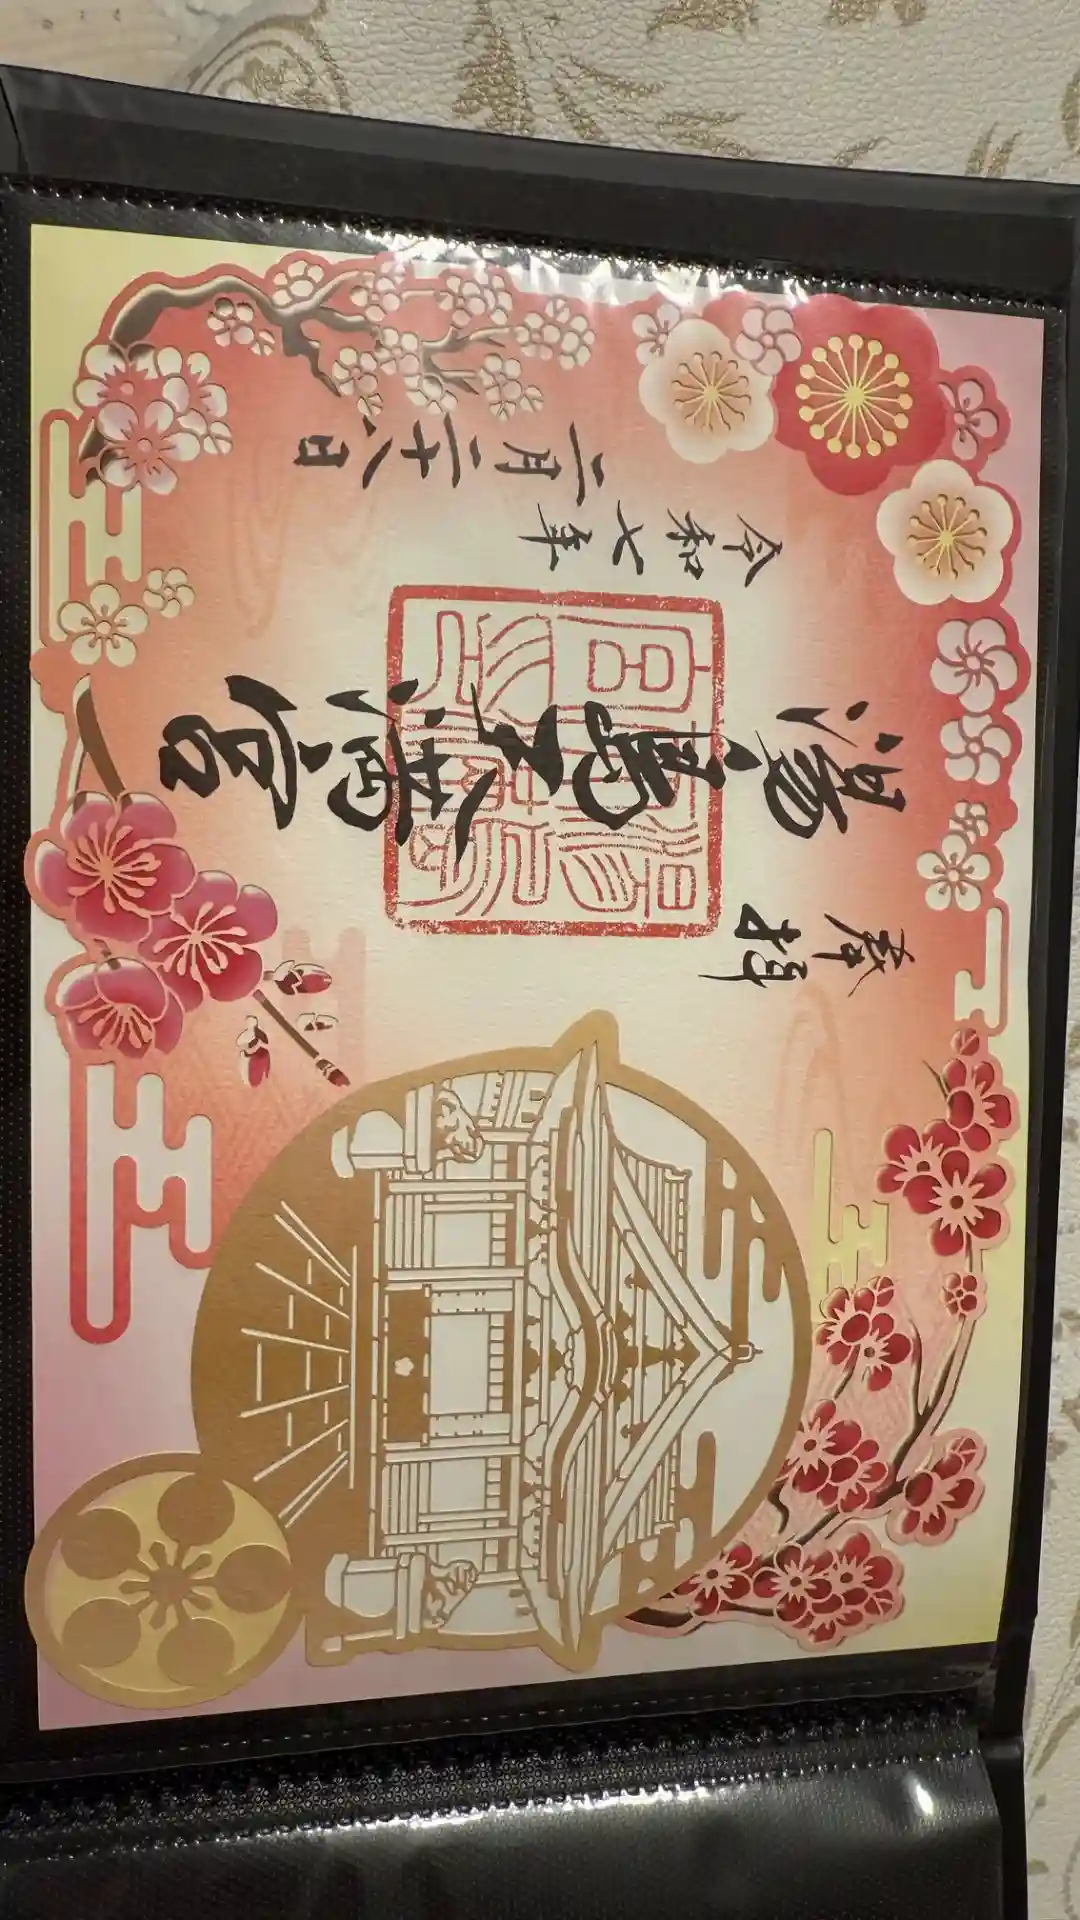 奉拝
湯島天満宮
令和七年
二月二十八日